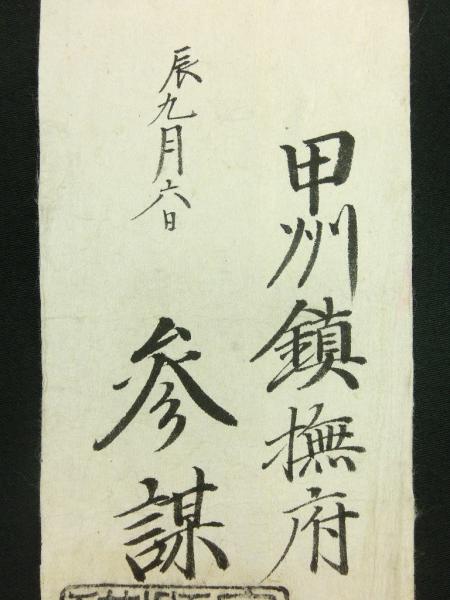 甲州鎮撫府
辰九月六日
参謀